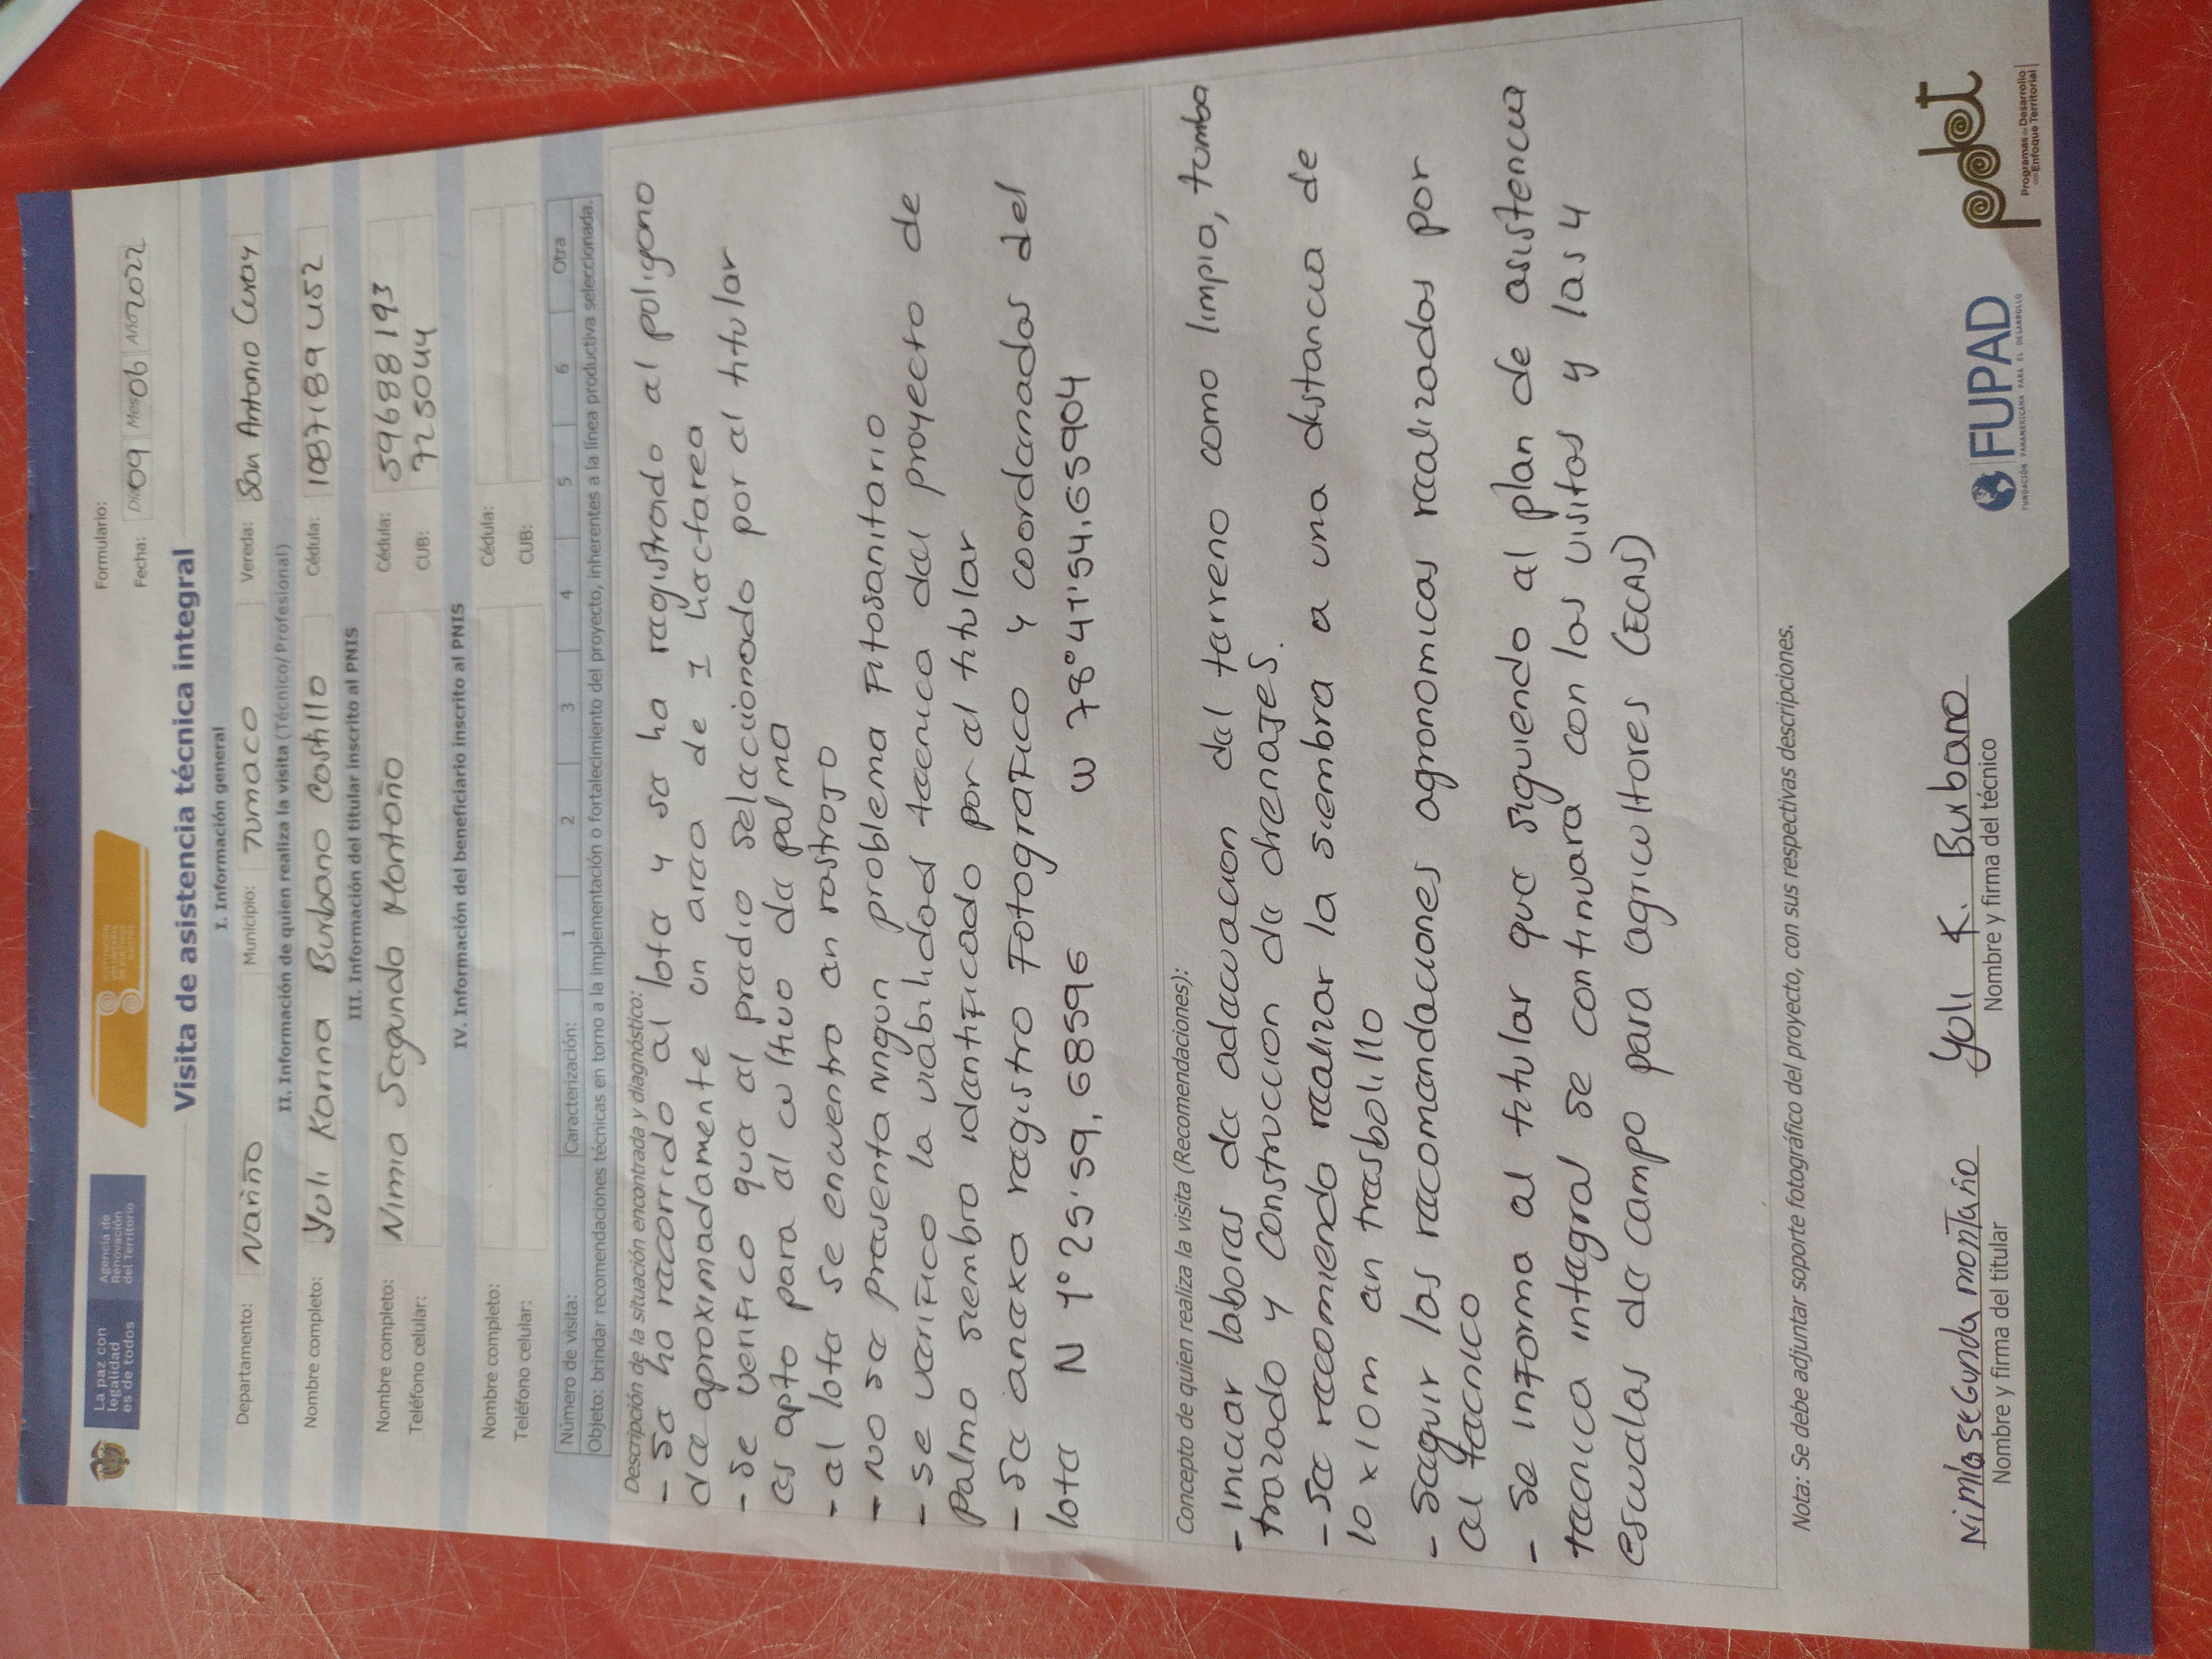 La paz con
legalidad
es de todos
Agencia de
Renovación
del Territorio
Formulario:
Fecha: Día 09 Mes 06 Año 2022
Visita de asistencia técnica integral
I. Información general
Departamento: Nariño Municipio: Tumaco Vereda: San Antonio Curay
II. Información de quien realiza la visita (Técnico/Profesional)
Nombre completo: Yuli Karina Burbano Costillo Cédula: 1087189452
III. Información del titular inscrito al PNIS
Nombre completo: Nimia Segunda Montaño Cédula: 59688193
Teléfono celular: CUB: 725044
IV. Información del beneficiario inscrito al PNIS
Nombre completo: Cédula:
Teléfono celular: CUB:
Número de visita: Caracterización: 1 2 3 4 5 6 Otra
Objeto: brindar recomendaciones técnicas en torno a la implementación o fortalecimiento del proyecto, inherentes a la línea productiva seleccionada.
Descripción de la situación encontrada y diagnóstico:
- Se ha recorrido el lote y se ha registrado el poligono
de aproximadamente un area de 1 hactarea
- Se verifico que el predio selaccionado por el titular
es apto para el cultivo de palma
- el lote se encuentra en rastrojo
- No se presenta ningun problema Fitosanitario
- se verifico la viabilidad tecnica del proyecto de
palma siembra identificado por el titular
- Se anexa registro Fotografico y coordenadas del
lote N 1° 25' 59,68596 W 78° 41' 54,65904
Concepto de quien realiza la visita (Recomendaciones):
- iniciar labores de adecuacion del terreno como limpia, tumba
trazado y construccion de drenajes.
- Se recomienda realizar la siembra a una distancia de
10 x 10m en tresbolillo
- Seguir las recomendaciones agronomicas realizadas por
el tecnico
- Se informa al titular que siguiendo el plan de asistencia
tecnica integral se continuara con las visitas y las 4
escuelas de campo para agricultores (ECAS)
Nota: Se debe adjuntar soporte fotográfico del proyecto, con sus respectivas descripciones.
Nimia segunda montaño Yuli K. Burbano
Nombre y firma del titular Nombre y firma del técnico
FUPAD
FUNDACIÓN PANAMERICANA PARA EL DESARROLLO
pdet
Programas de Desarrollo
con Enfoque Territorial